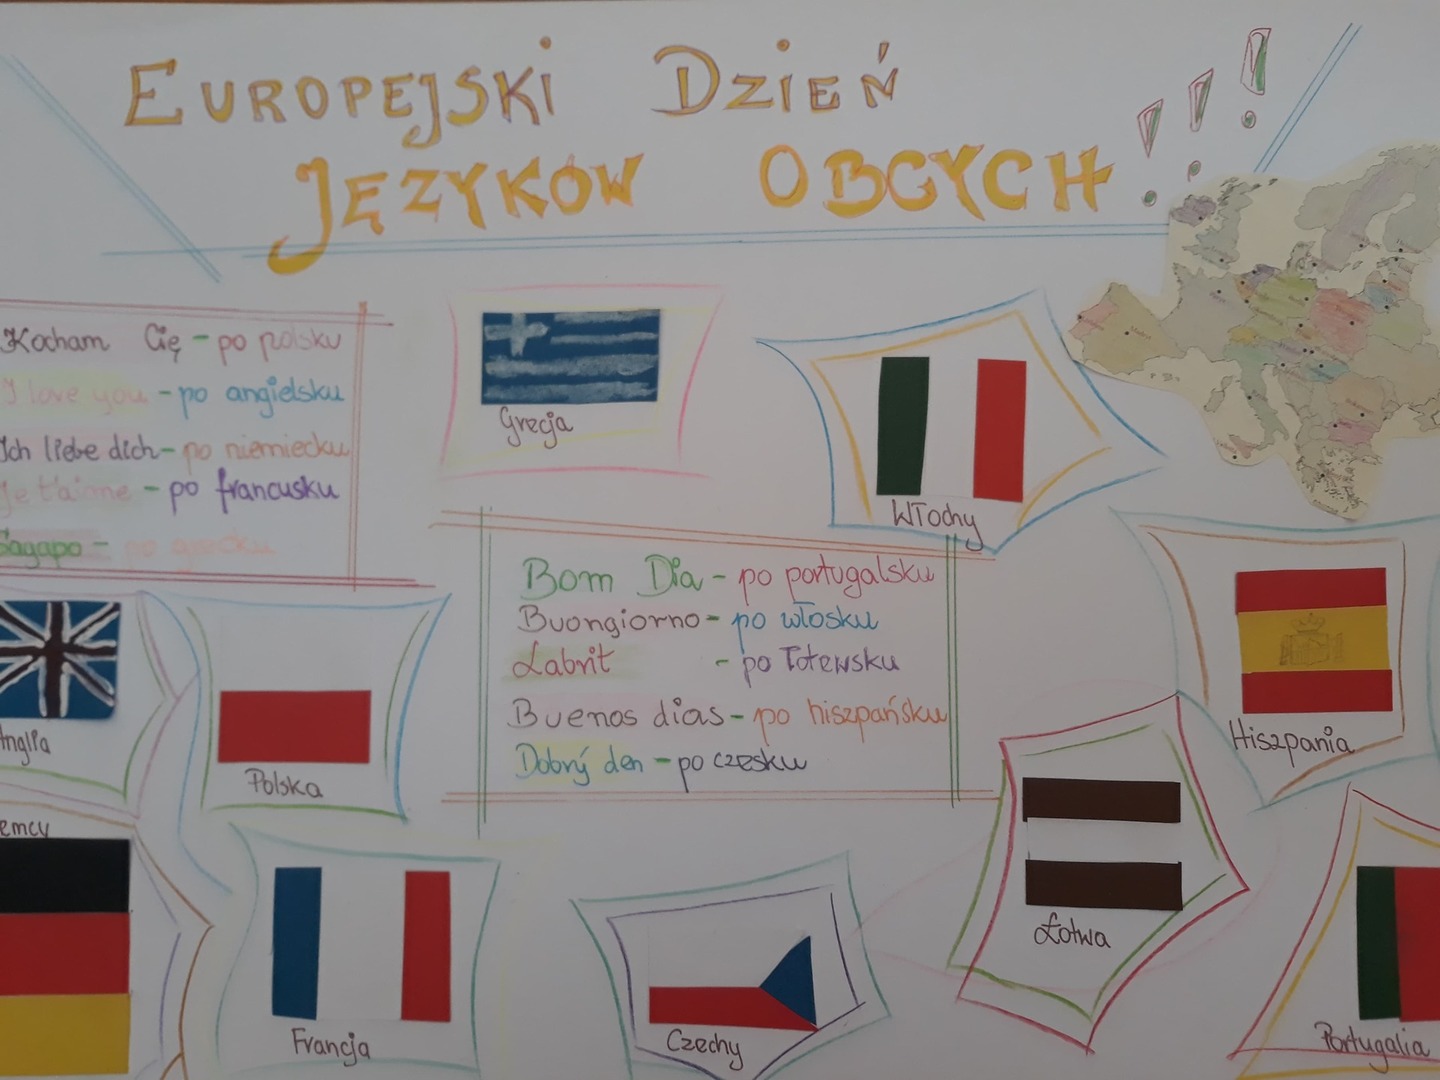 EUROPEJSKI DZIEŃ
JĘZYKÓW OBCYCH !!!
Kocham Cię - po polsku
I love you - po angielsku
Ich liebe dich - po niemiecku
Je t'aime - po francusku
Sagapo - po grecku
Grecja
Włochy
Bom Dia - po portugalsku
Buongiorno - po włosku
Labrit - po łotewsku
Buenos dias - po hiszpańsku
Dobrý den - po czesku
Anglia
Polska
Hiszpania
emcy
Francja
Czechy
Łotwa
Portugalia